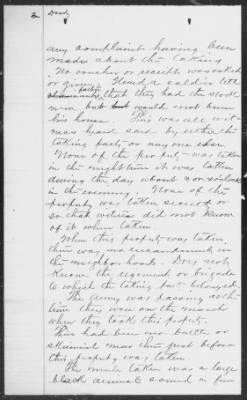 2 Dood
any complaint having been
made about the taking
No voucher or receipt was asked
or given. Heard a soldier tell
that they had the stock
now but would not burn
his house. This was all wit-
ness heard said by either the
taking party or any one else.
None of the property was taken
in the night time it was taken
during the day about
in the evening. None of the
property was taken secret or
so that witness did not know
of it when taken
When this property was taken
there was no encampment in
the neighborhood. Does not
know the regiment or brigade
to which the taking party belonged.
The Army was passing at the
time they were on the march
when they took this property.
There had been no battle or
skirmish near there just before
this property was taken.
The mule taken was a large
black animal sound in fine